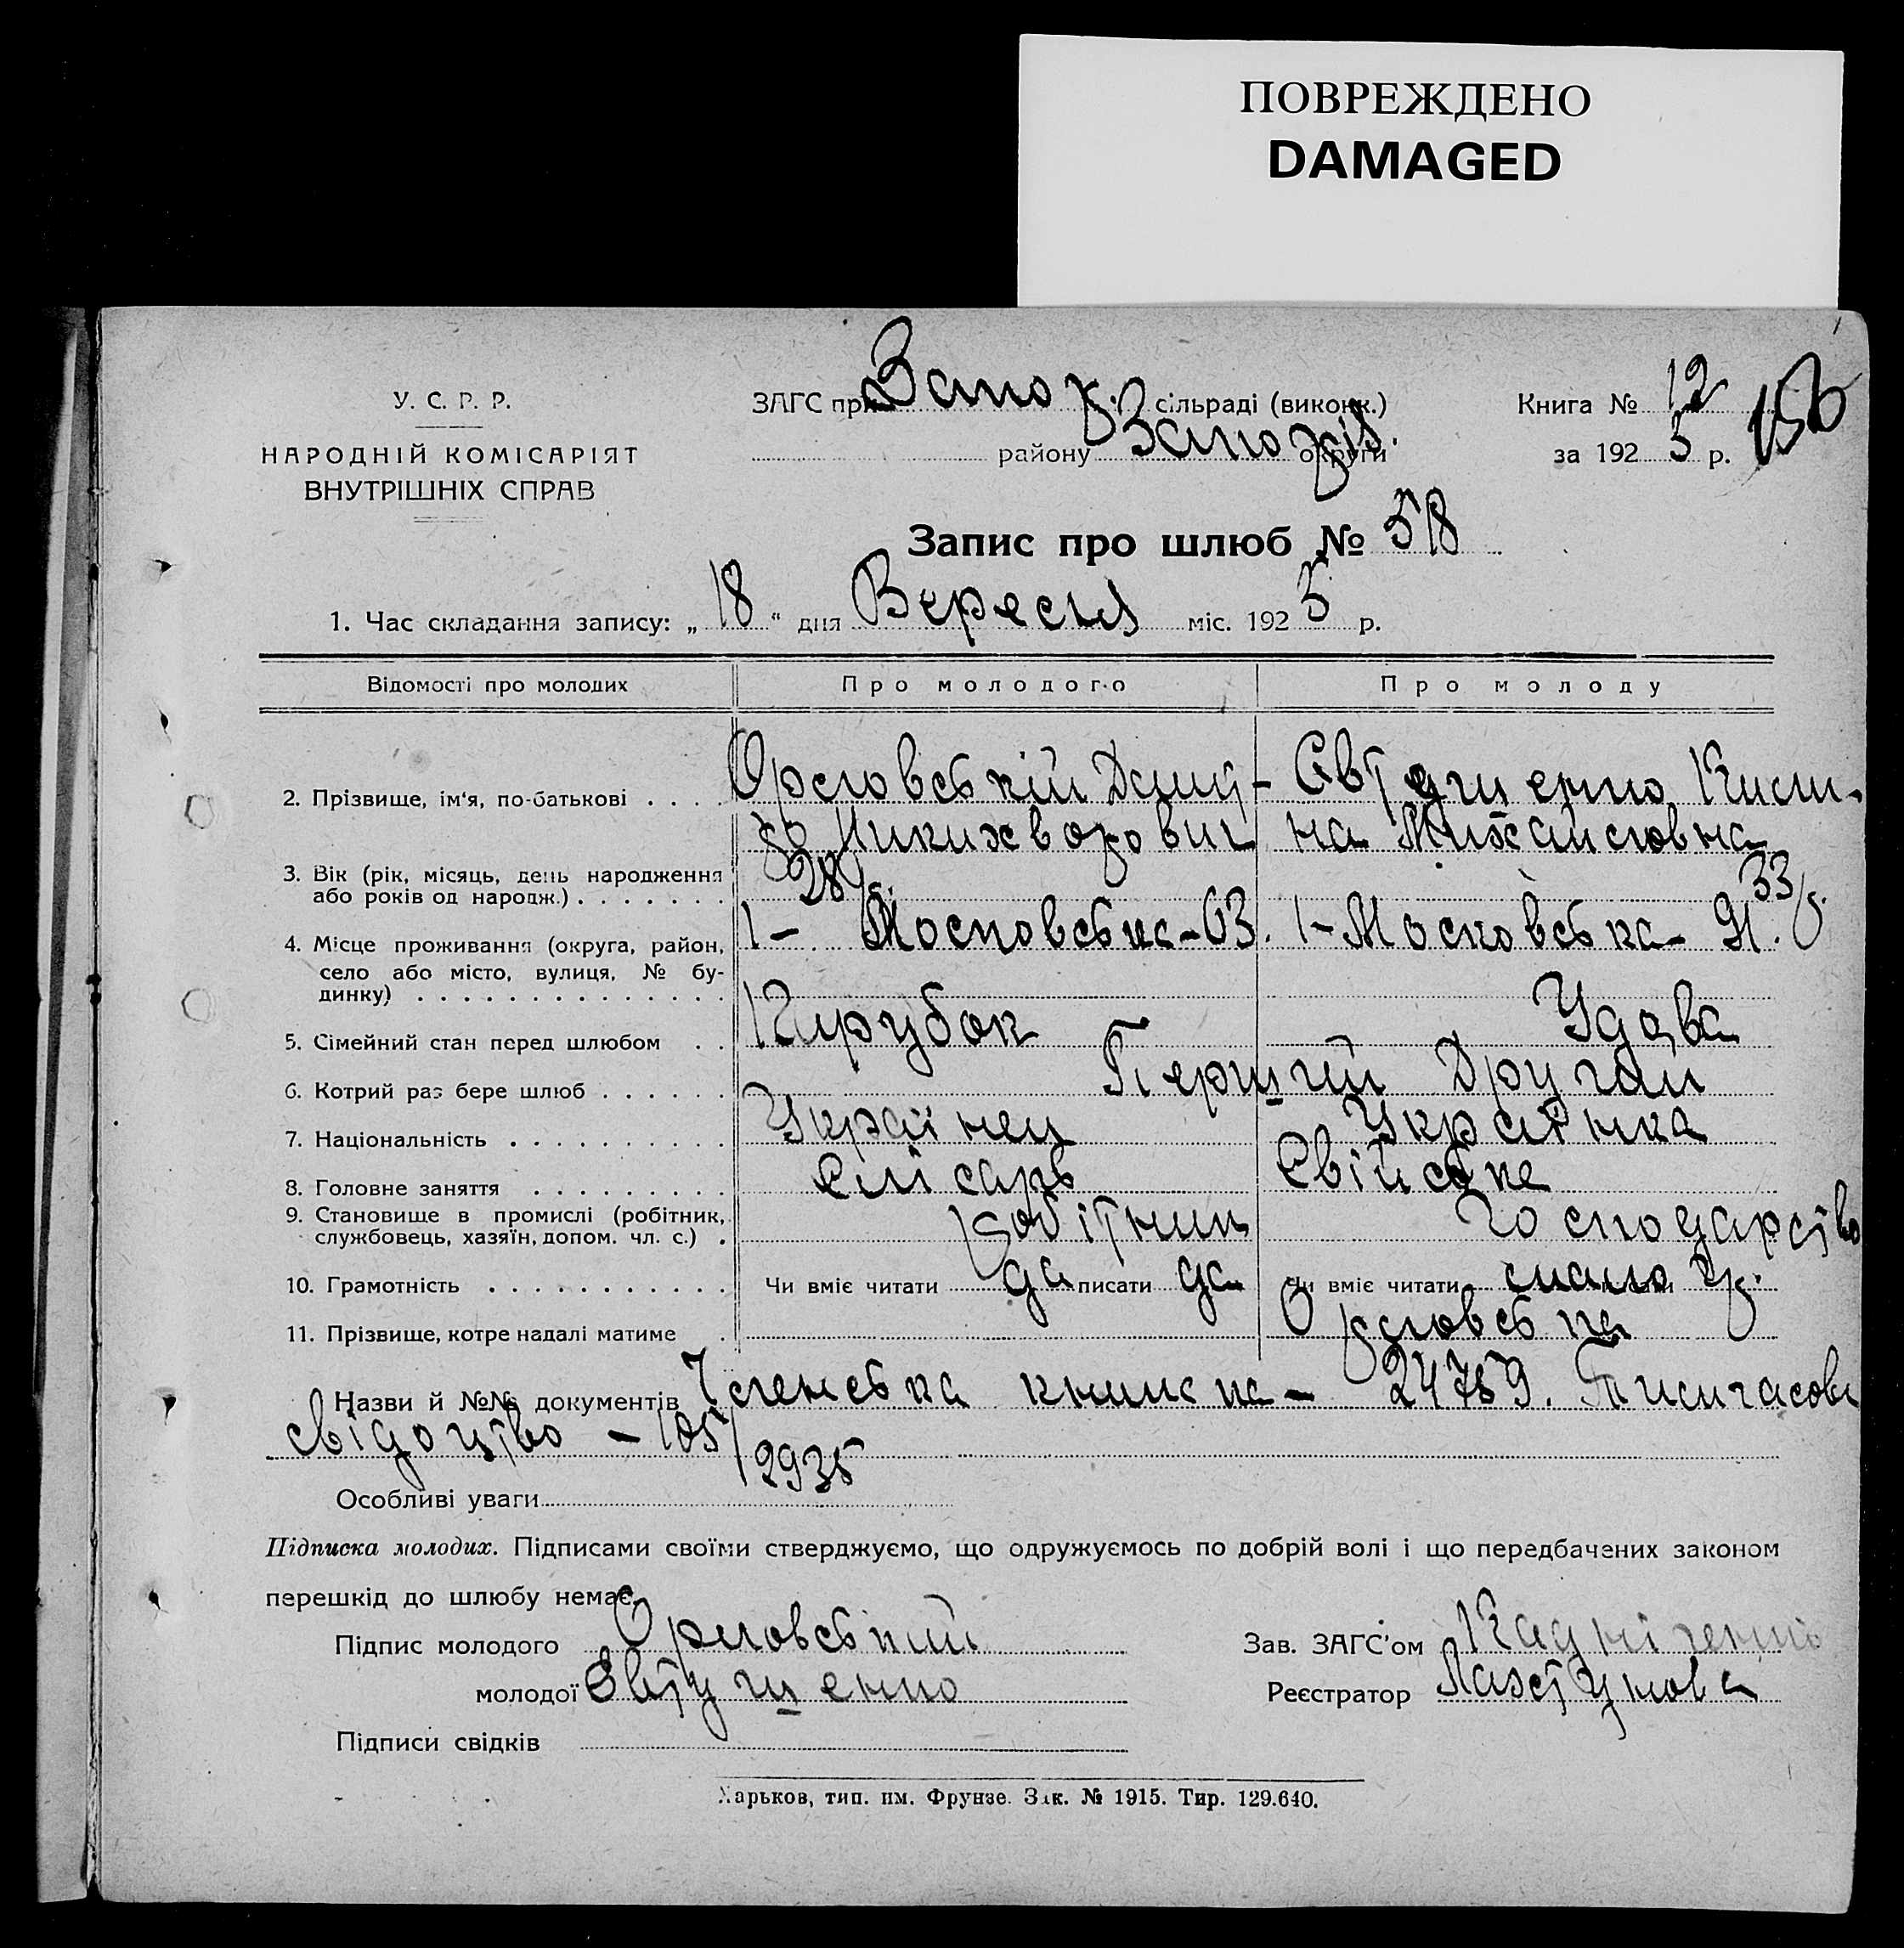 ПОВРЕЖДЕНО
DAMAGED
У. С. Р. Р.
НАРОДНІЙ КОМІСАРІЯТ
ВНУТРІШНІХ СПРАВ
ЗАГС при Запор. сільраді (виконк.)
району Запоріз. округи
Книга № 12
за 1925 р.
Запис про шлюб № 518
1. Час складання запису: „ 18 “ дня Вересня міс. 1925 р.
Відомості про молодих Про молодого Про молоду
2. Прізвище, ім'я, по-батькові . . . . Орловській Євтушенко
Никихворович на Михайловна
3. Вік (рік, місяць, день народження
або років од народж.) . . . . . . . 28 33
4. Місце проживання (округа, район, 1 – Московська – 63. 1 – Московська – 91.
село або місто, вулиця, № бу-
динку) . . . . . . . . . . . . . .
5. Сімейний стан перед шлюбом . . Парубок Удова
6. Котрий раз бере шлюб . . . . . . Перший Другий
7. Національність . . . . . . . . . . Українец Українка
8. Головне заняття . . . . . . . . . слісарь
9. Становище в промислі (робітник, робітник господарство
службовець, хазяїн, допом. чл. с.) .
10. Грамотність . . . . . . . . . . . Чи вміє читати да писати да Чи вміє читати мало писати
11. Прізвище, котре надалі матиме . Орловська
Назви й №№ документів Членська книжка – 24759. Тимчасове
свідоцтво – 105/2935
Особливі уваги
Підписка молодих. Підписами своїми стверджуємо, що одружуємось по добрій волі і що передбачених законом
перешкід до шлюбу немає.
Підпис молодого Орловський
Зав. ЗАГС'ом
молодої Євтушенко
Реєстратор
Підписи свідків
Харьков, тип. им. Фрунзе. Зак. № 1915. Тир. 129.640.